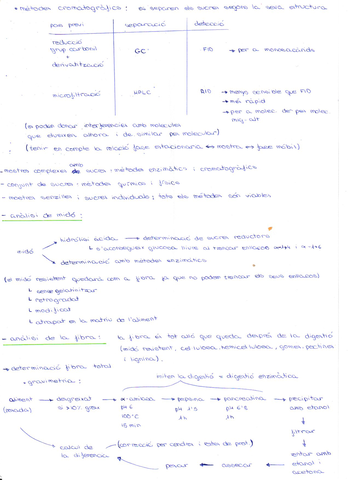 • mètodes cromatogràfics: es separen els sucres segons la seva estructura
pas previ separació detecció
reducció
grup carbonil GC FID → per a monosacàrids
+
derivatització
microfiltració HPLC RID → menys sensible que FID
→ més ràpid
→ per a molec. de pes molec.
més alt
(es poden donar interferències amb molècules
que elueixen alhora i de similar pes molecular)
! (tenir en compte la relació fase estacionària ↔ mostra ↔ fase mòbil)
- mostres complexes amb sucres: mètodes enzimàtics i cromatogràfics
- conjunt de sucres: mètodes químics i físics
- mostres senzilles i sucres individuals: tots els mètodes són viables
- anàlisi de midó:
midó
hidròlisi àcida → determinació de sucres reductors
↳ s'aconsegueix glucosa lliure al trencar enllaços
determinació amb mètodes enzimàtics
(el midó resistent quedarà com a fibra ja que no poden trencar els seus enllaços)
↳ sense gelatinitzar
↳ retrogradat
↳ modificat
↳ atrapat en la matriu de l'aliment
- anàlisi de la fibra: la fibra és tot allò que queda després de la digestió
(midó resistent, cel·lulosa, hemicel·lulosa, gomes, pectina
i lignina).
→ determinació fibra total
• gravimetria: imiten la digestió = digestió enzimàtica
aliment → desgreixat → α-amilasa → pepsina → pancreatina → precipitar
(pesada) si > 10% greix pH 6 pH 1'5 pH 6'8 amb etanol
100°C 1h 1h ↓
15 min filtrar
↓
càlcul de (correcció per cendres i restes de prot.) rentar amb
la diferència pesar ← assecar ← etanol i
acetona